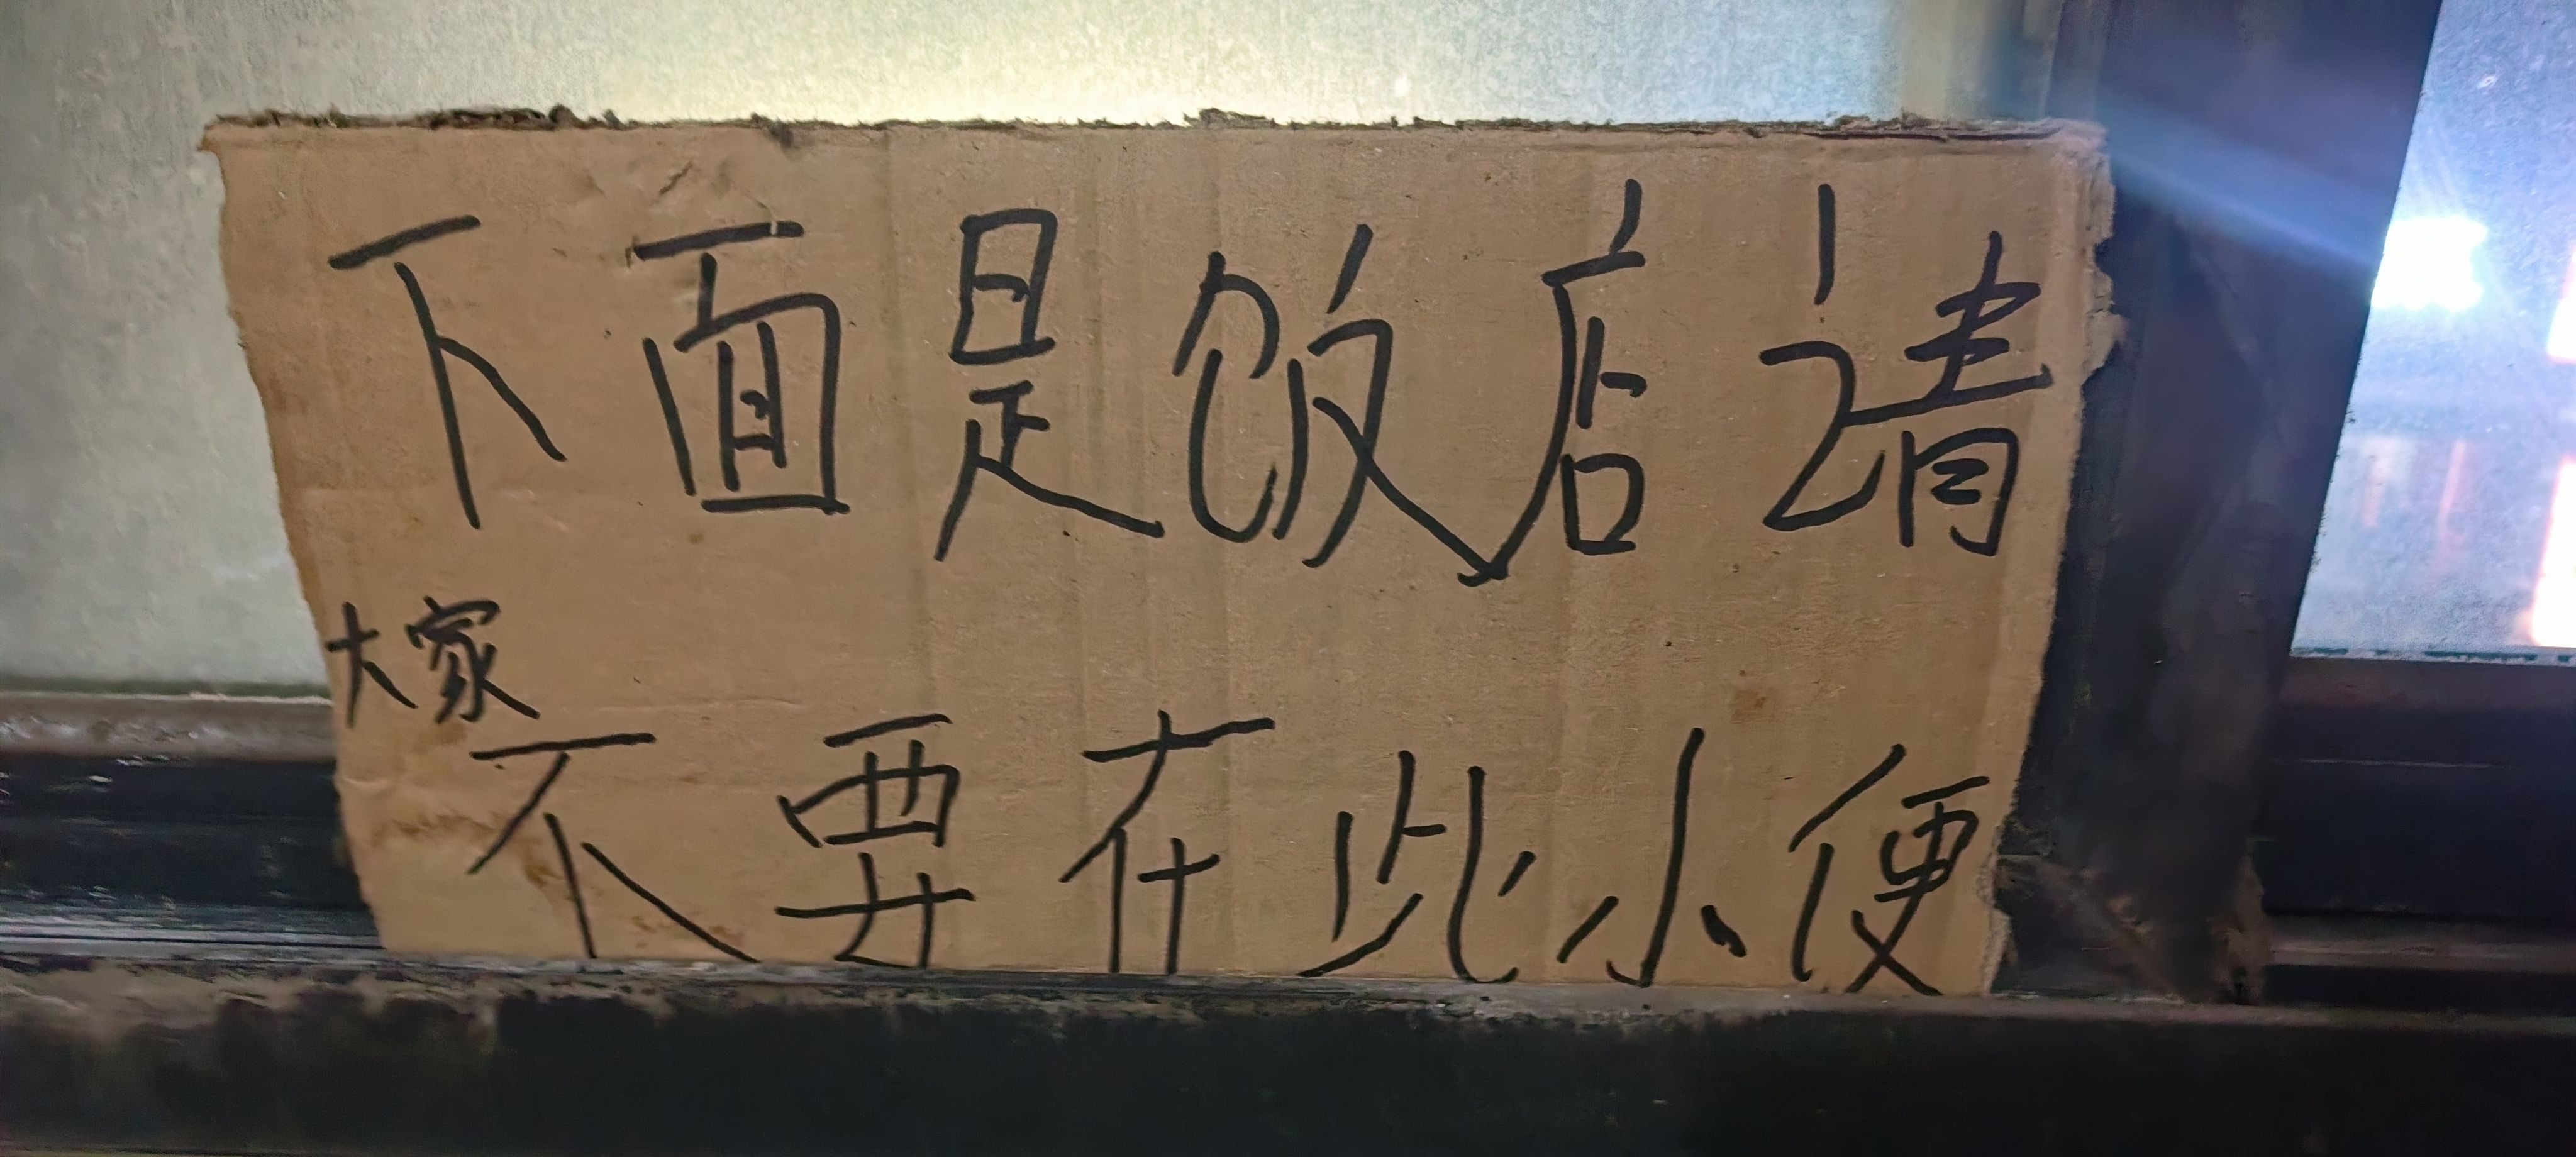 下面是饭店请
大家
不要在此小便